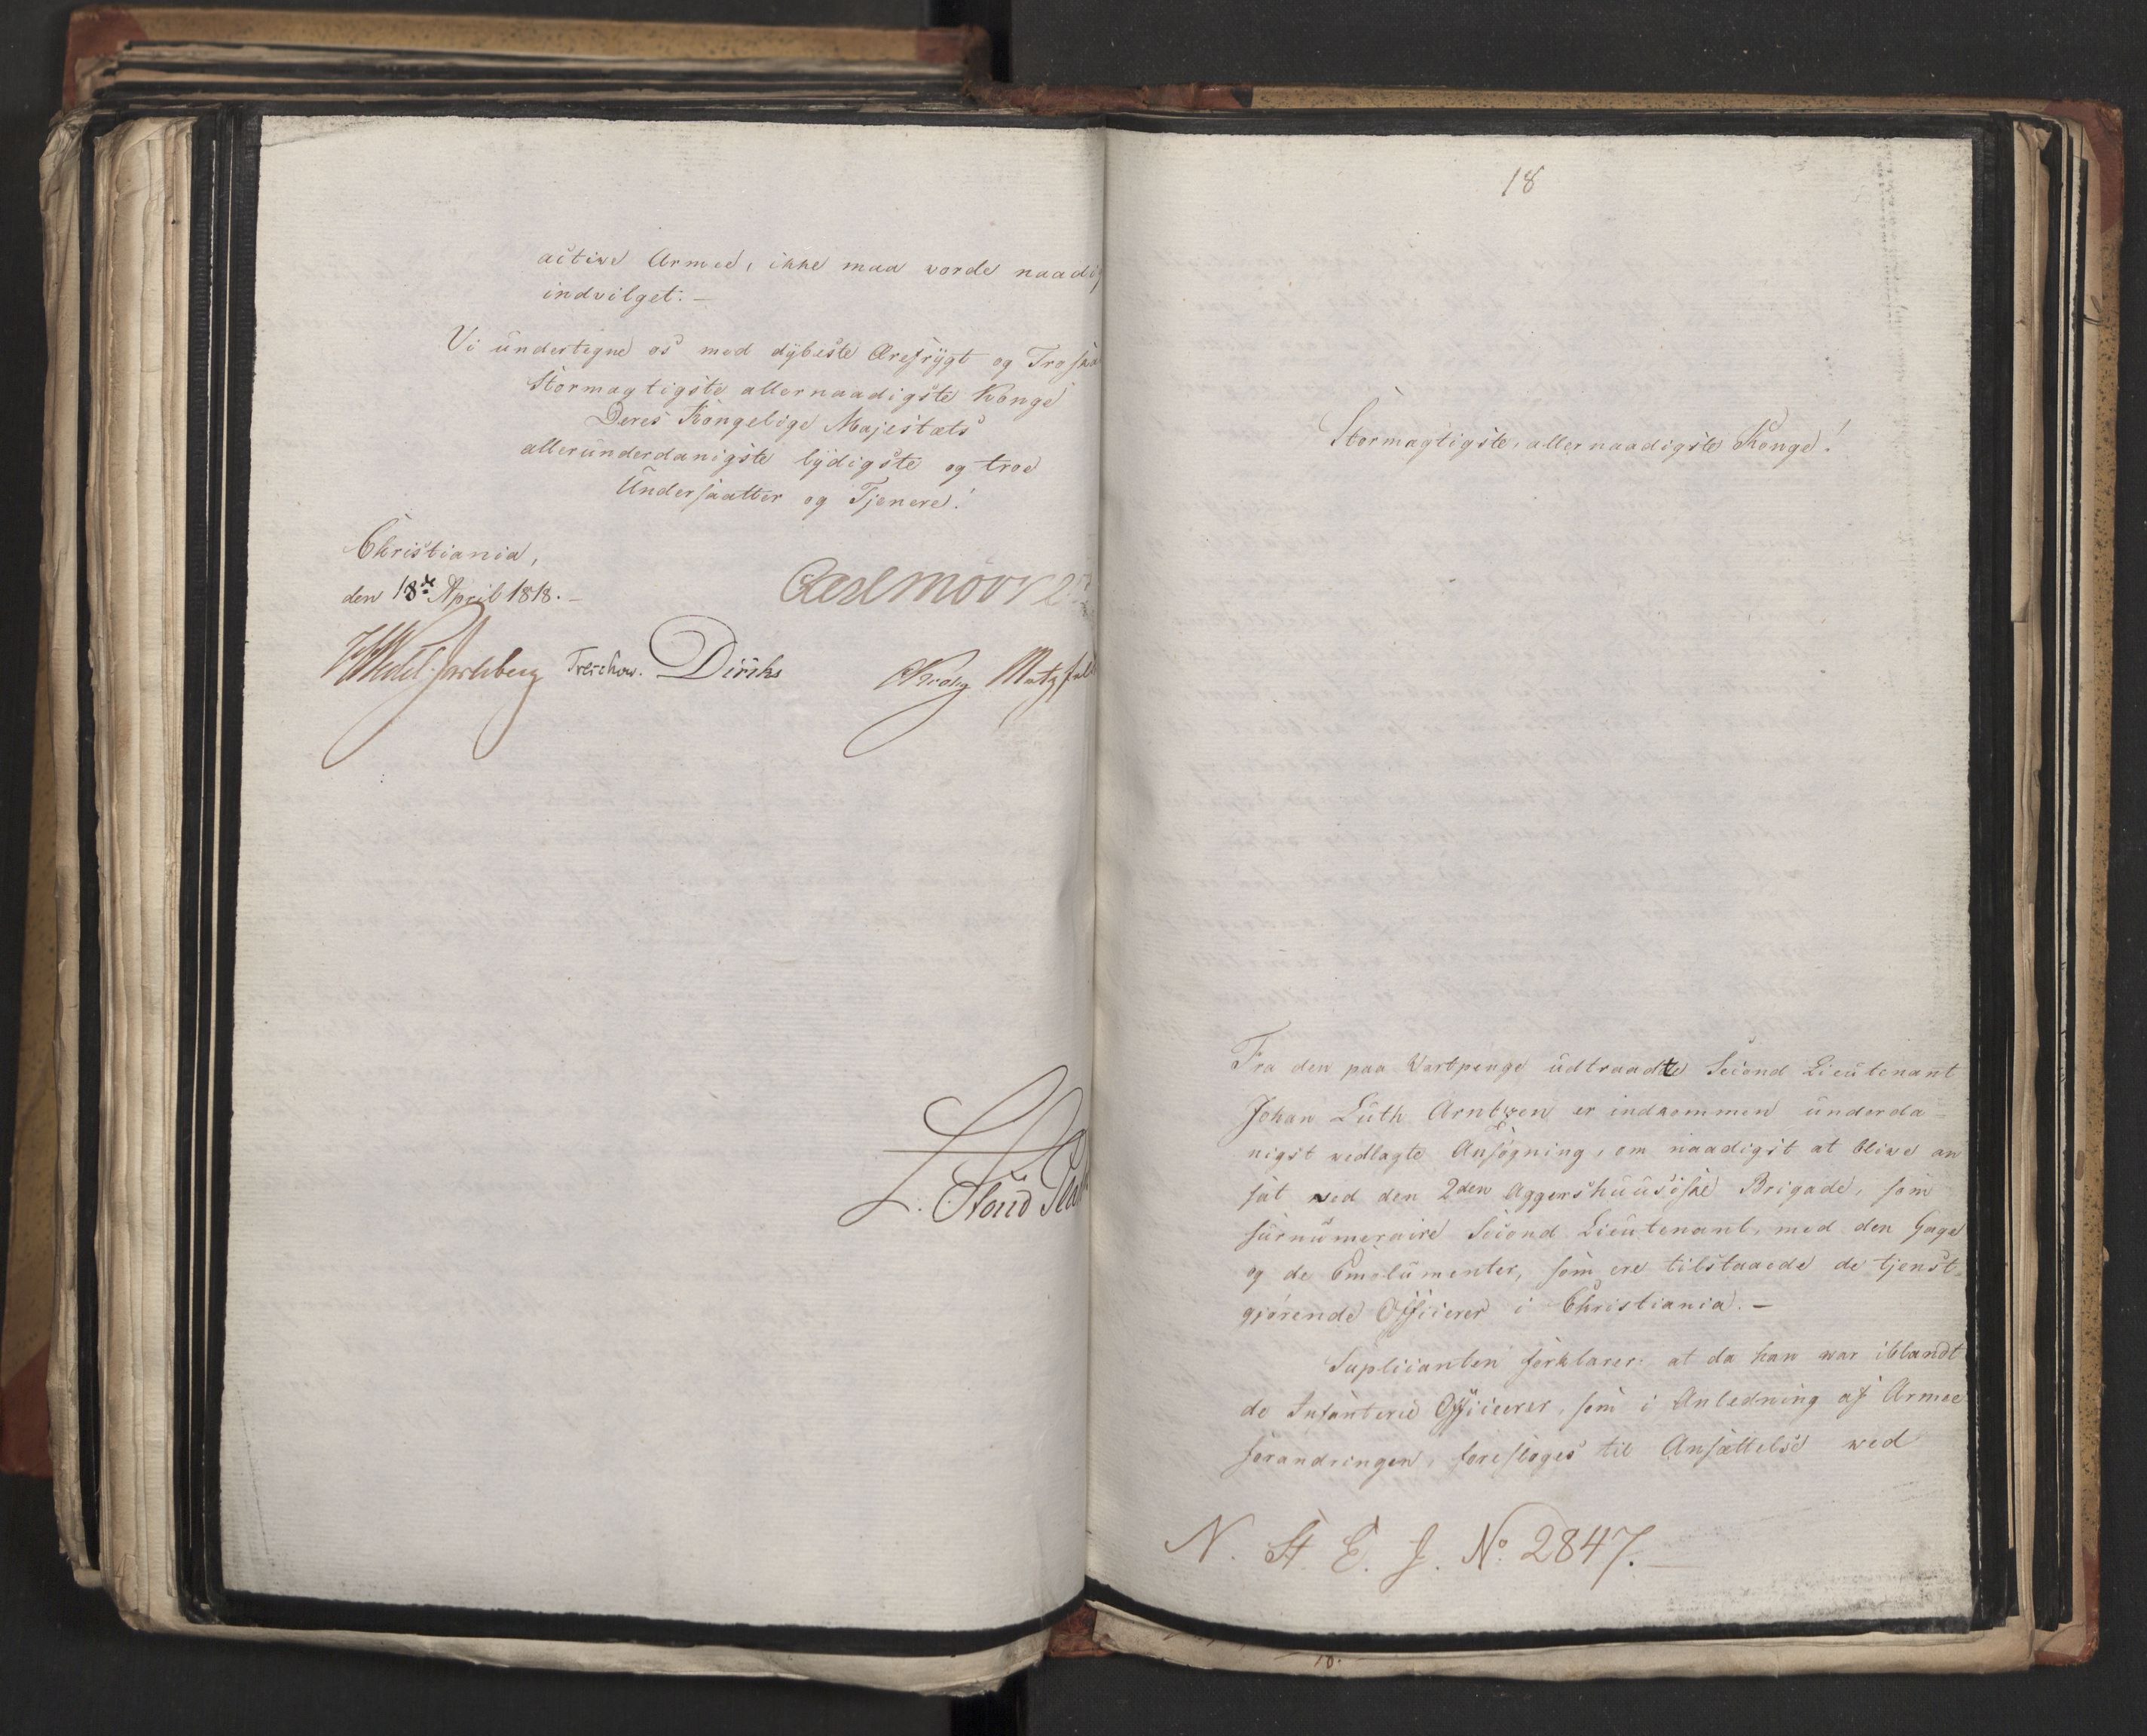 active Armee, ikke maa vorde naadig
indvilget. –
Vi undertegne os med dybeste Ærefrygt og Troska
Stormagtigste allernaadigste Konge
Deres Kongelige Majestæts
allerunderdanigste lydigste og troe
Undersaatter og Tjenere!
Christiania,
den 18de April 1818. –
Carl Mörner
HWedel-Jarlsberg Treschow. Diriks Krohg Motzfeldt
18
Stormagtigste, allernaadigste Konge!
Fra den paa Vartpenge udtraadte Second Lieutenant
Johan Luth Arntzen er indkommen underda-
nigst vedlagte Ansøgning, om naadigst at blive an
sat ved den 2den Aggershuusiske Brigade, som
surnumeraire Second Lieutenant, med den Gage
og de Emolumenter, som ere tilstaaede de tjenst
gjørende Officierer i Christiania. –
Suplicanten forklarer: at da han var iblandt
de Infanterie Officierer, som i Anledning af Armee
forandringen, foresloges til Ansættelse ved
N. St. E. J. No. 2847. –
10.